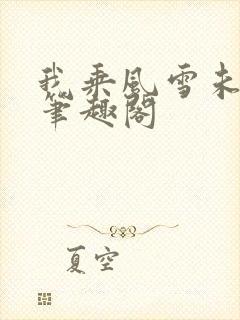 我乘风雪未
笔趣阁
夏空